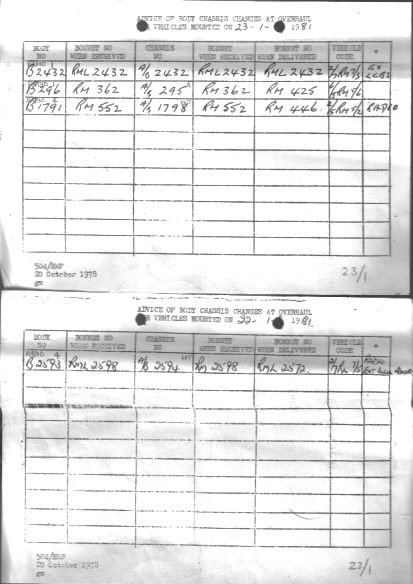 ADVICE OF BODY CHASSIS CHANGES AT OVERHAUL
R VEHICLES MOUNTED ON 23-1- 1981
BODY NO BONNET NO WHEN RECEIVED CHASSIS NO BONNET WHEN RECEIVED BONNET NO WHEN DELIVERED VEHICLE CODE *
B2432 RML 2432 A/S 2432 RML 2432 RML 2432 2/7RM7/5 EX LCBS
B296 RM 362 A/S 295 RM 362 RM 425
B1791 RM 552 A/S 1798 RM 552 RM 446 RADIO
504/EMP
20 October 1978
23/1
ADVICE OF BODY CHASSIS CHANGES AT OVERHAUL
R VEHICLES MOUNTED ON 22-1- 1981
BODY NO BONNET NO WHEN RECEIVED CHASSIS NO BONNET WHEN RECEIVED BONNET NO WHEN DELIVERED VEHICLE CODE *
RADIO 4
B2593 RML 2598 A/S 2594 HT RM 2598 RML 2572. RADIO
504/EMP
20 October 1978
22/1